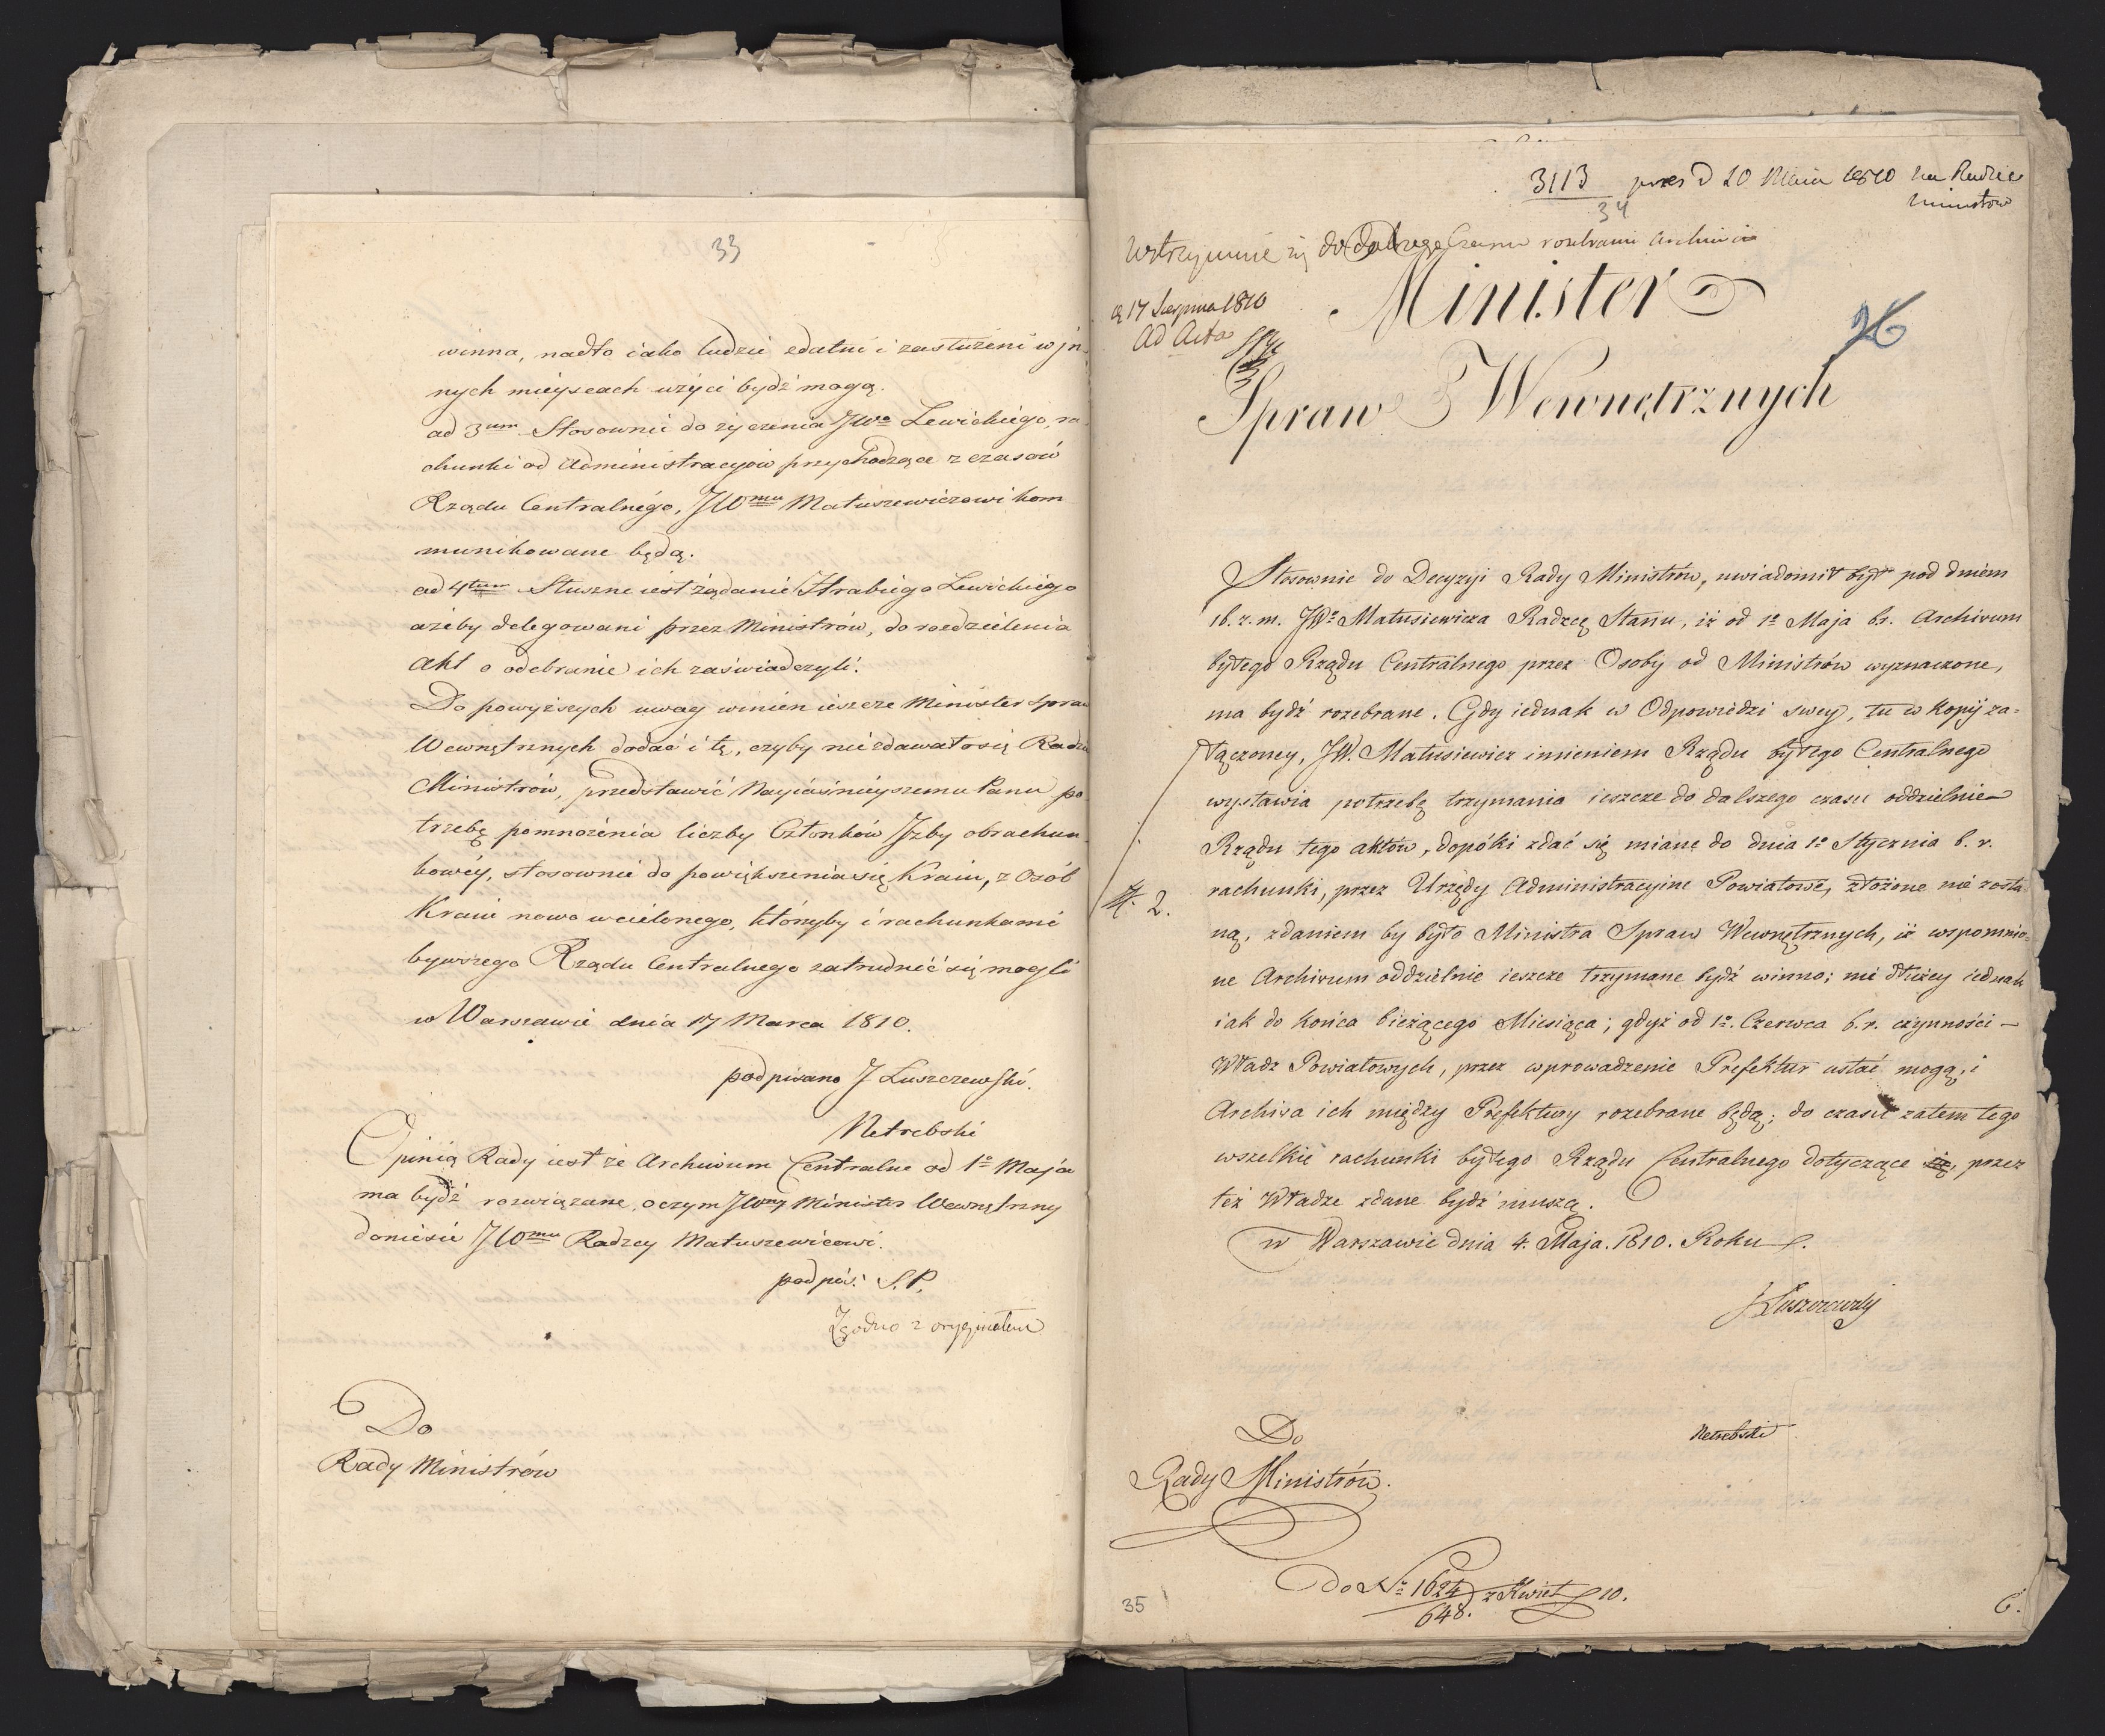 33
winna, nadto iako ludzie zdatni i zasłużeni w in-
nych mieyscach użyci bydź mogą.
ad 3um Stosownie do życzenia JWo Lewickiego, ra-
chunki od Administracyów przychodzące z czasów
Rządu Centralnégo, JWmu Matuszewiczowi kom
munikowane będą.
ad 4tum Słuszne iest żądanie Hrabiégo Lewickiégo
ażeby delegowani przez Ministrów, do rozdzielenia
Akt o odebranie ich zaświadczyli.
Do powyższych uwag winien ieszcze Minister Spraw
Wewnętrznych dodać i tę, czyby nie zdawało się Radzie
Ministrów, przedstawić Nayiaśnieyszemu Panu po-
trzebę pomnożenia liczby Członków Izby obrachun
kowéy, stosownie do powiększenia się Kraiu, z Osób
Kraiu nowo wcielonego, któryby i rachunkami
bywszego Rządu Centralnego zatrudnić się mogli
w Warszawie dnia 17 Marca 1810.
podpisano J Łuszczewski.
Netrebski
Opinią Rady iest że Archiwum Centralne od 1o Maja
ma bydź rozwiązane, o czym JWny Minister Wewnętrzny
doniesie JWmu Radzcy Matuszewicowi.
podpis: S.P.
Zgodno z oryginałem
Do
Rady Ministrów
3113 prez D 10 Maia 1810 na Radzie
Ministrów
34
Wstrzymuie się do dalszego Czasu rozebranie Archiwia
17 Sierpnia 1810
Ad Acta
Minister
26
Spraw Wewnętrznych
Stosownie do Decyzyi Rady Ministrów, uwiadomił był pod dniem
16. z. m. JWo Matusiewicza Radzcę Stanu, iż od 1o Maja b.r. Archivum
byłego Rządu Centralnego przez Osoby od Ministrów wyznaczone,
ma bydź rozebrane. Gdy iednak w Odpowiedzi swey, tu w kopij za-
łączoney, JW. Matusiewicz imieniem Rządu byłego Centralnego
wystawia potrzebę trzymania ieszcze do dalszego czasu oddzielnie
Rządu tego aktów, dopóki zdać się miane do dnia 1o Stycznia b. r.
rachunki, przez Urzędy Administracyine Powiatowé, złożone nie zosta
2.
ną, zdaniem by było Ministra Spraw Wewnętrznych, iż wspomnio-
ne Archivum oddzielnie ieszcze trzymane bydź winno; nie dłużey iednak
iak do końca bieżącego Miesiąca; gdyż od 1o. Czerwca b.r. czynności
Władz Powiatowych, przez wprowadzenie Prefektur ustać mogą, i
Archiva ich między Prefektury rozebrane będą; do czasu zatem tego
wszelkie rachunki byłego Rządu Centralnego dotyczące się, przez
też Władze zdane bydź muszą.
w Warszawie dnia 4. Maja. 1810. Roku
JŁuszczewski
Netrebski
Do
Rady Ministrów.
do Nr 1624/648. z Kwiet 10.
35
6.